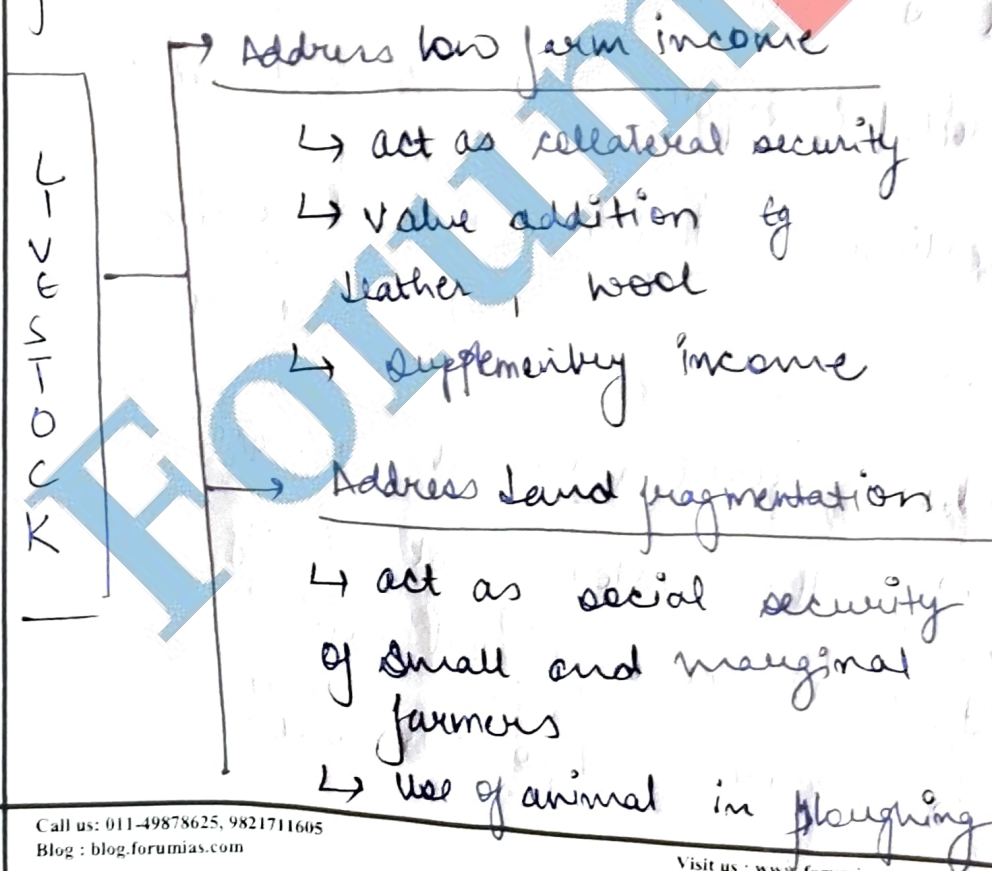 LIVESTOCK
→ Address low farm income
↳ act as collateral security
↳ value addition eg
leather, wool
↳ supplementry income
→ Address Land fragmentation
↳ act as social security
of small and marginal
farmers
↳ use of animal in ploughing
Forum
Call us: 011-49878625, 9821711605
Blog : blog.forumias.com
Visit us :